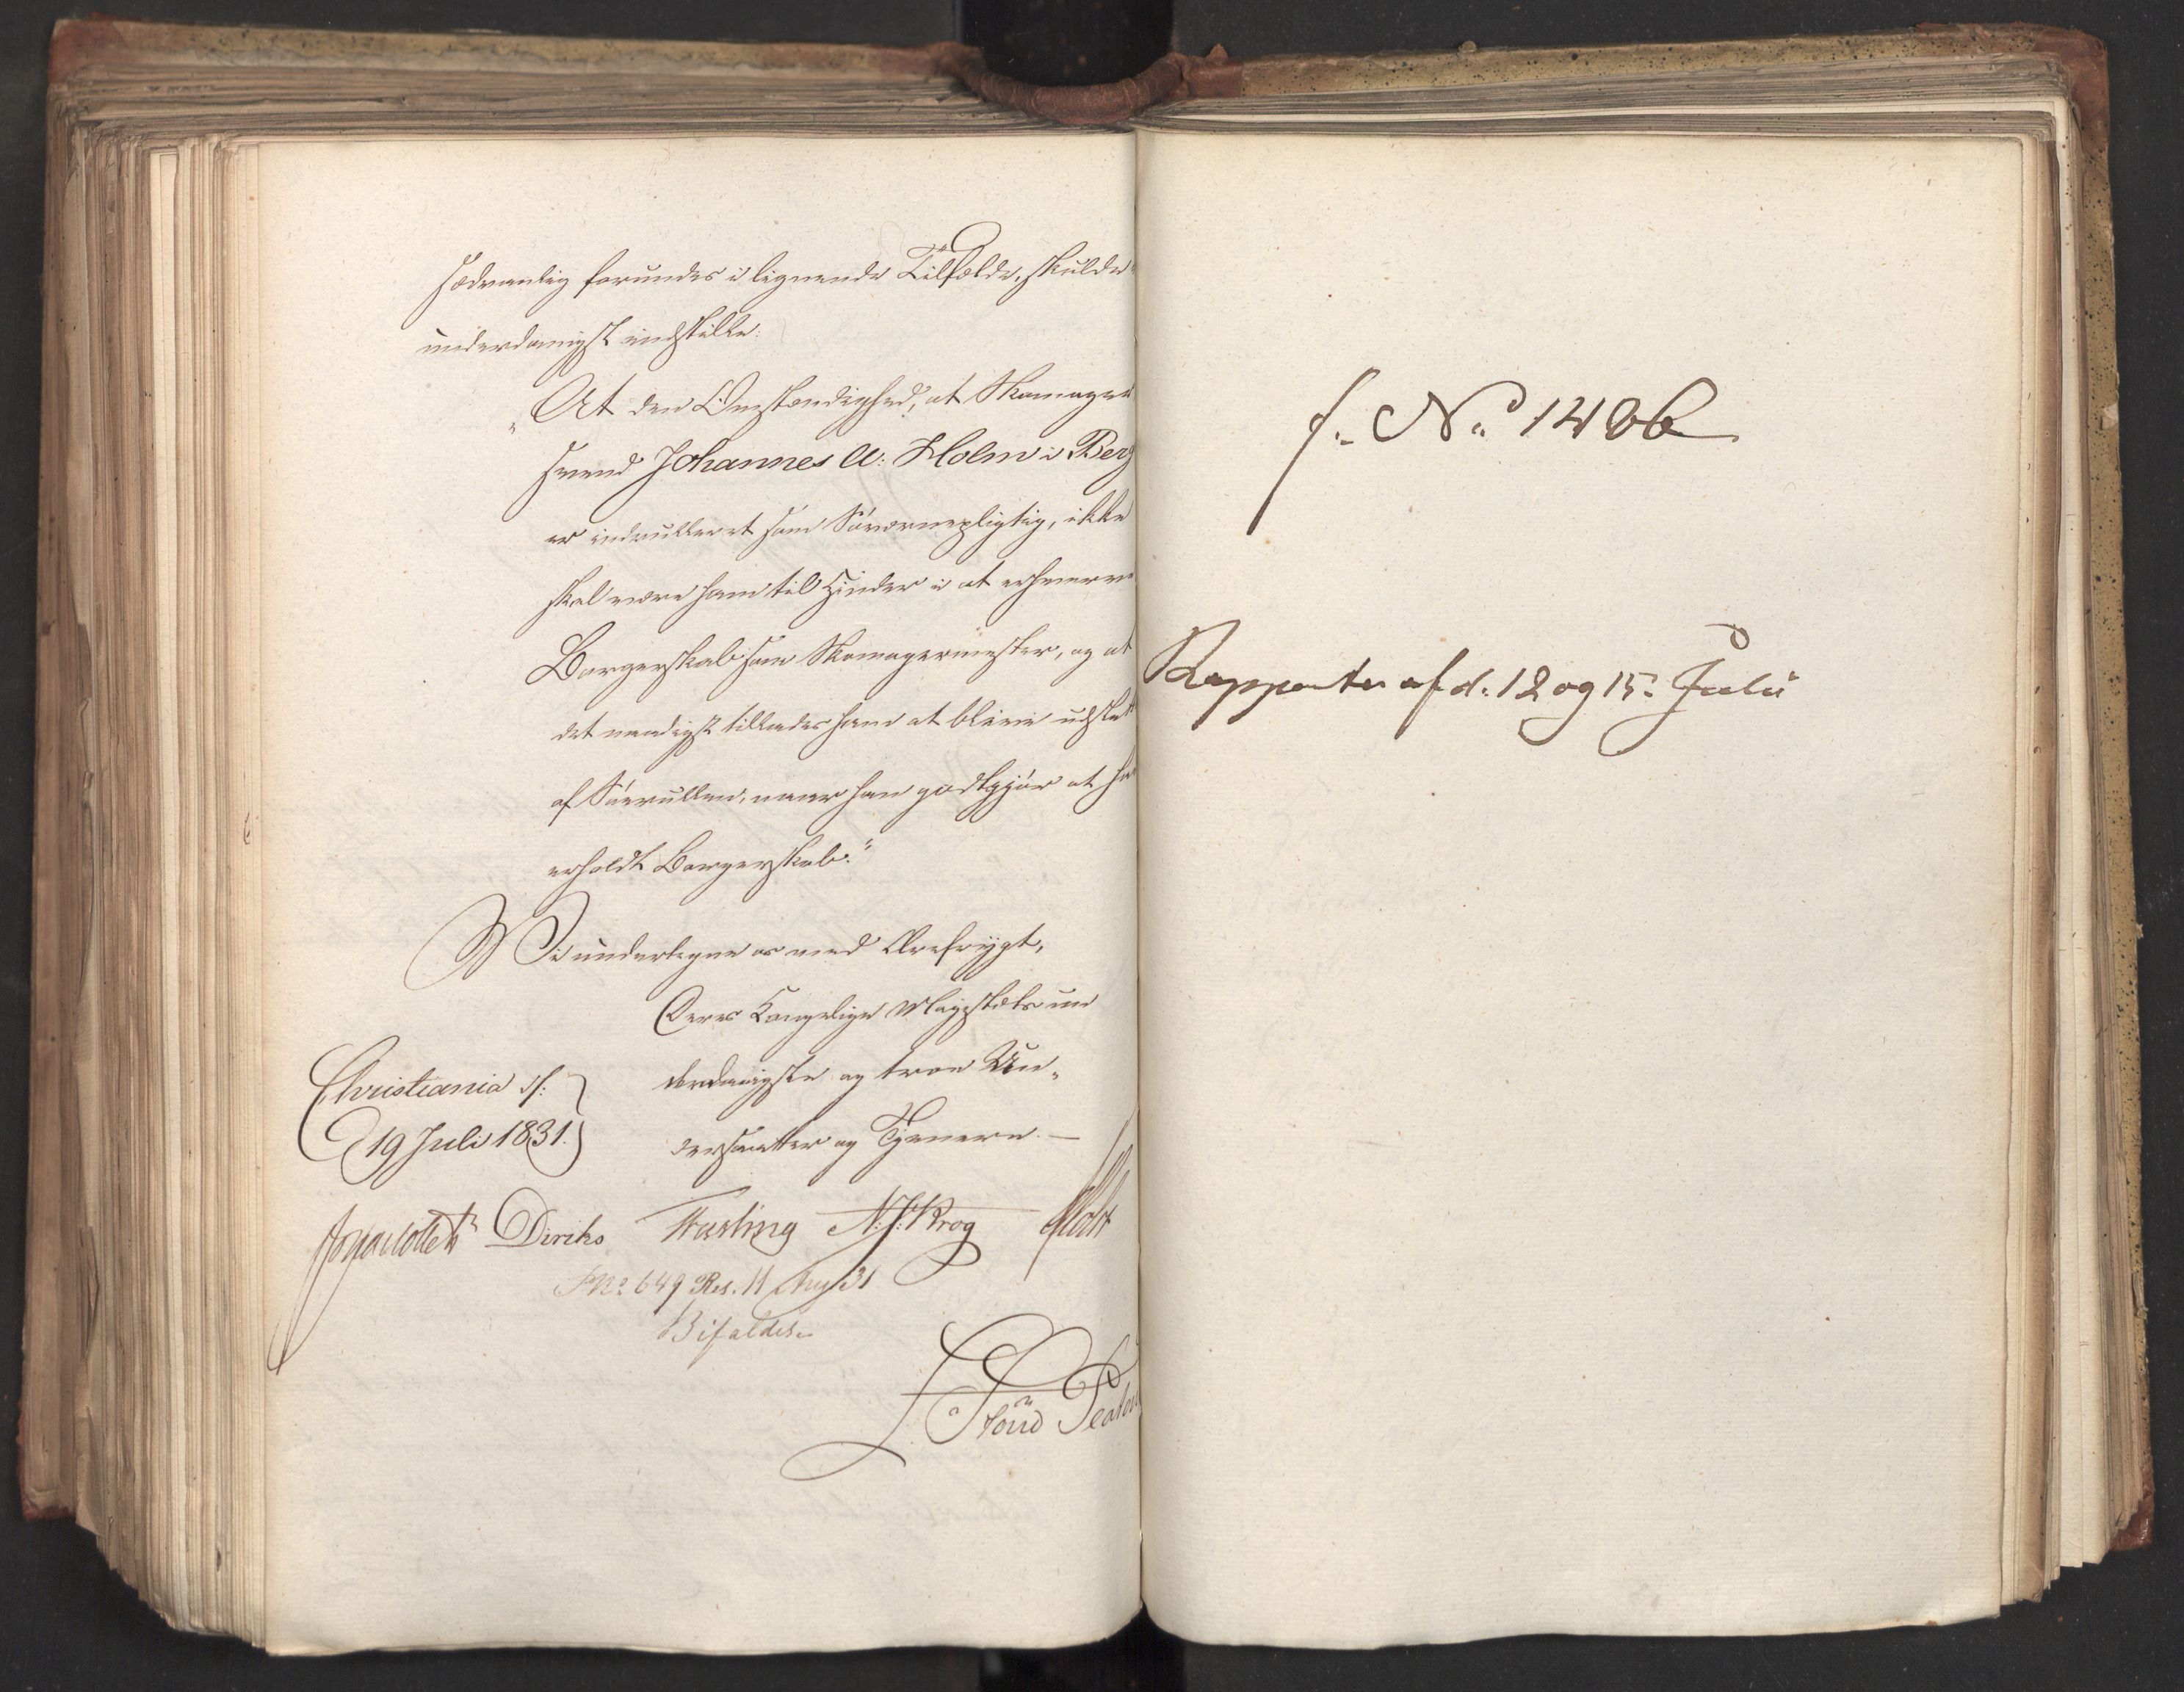 sædvanlig forundes i lignende Tilfælde, skulde
underdanigst indstille:
"At den Omstændighed, at Skomager
svend Johannes A: Holm i Berg
er indrulleret som Søværnepligtig, ikke
skal være ham til Hinder i at erhverve
Borgerskab som Skomagermester, og at
det naadigst tillades ham at blive udslet
af Søerullen, naar han godtgjør at ha
erholdt Borgerskab."
Vi undertegne os med Ærefrygt,
Deres Kongelige Majestæts un
derdanigste og troe Un-
dersaatter og Tjenere.—
Christiania sl:
d 19 Juli 1831.
Collett Diriks Fasting N. J: Krog Holst
No 649 Res. 11 Aug 31
Bifaldes
f. No 1406
Rapporter af d. 12 og 15. Julii